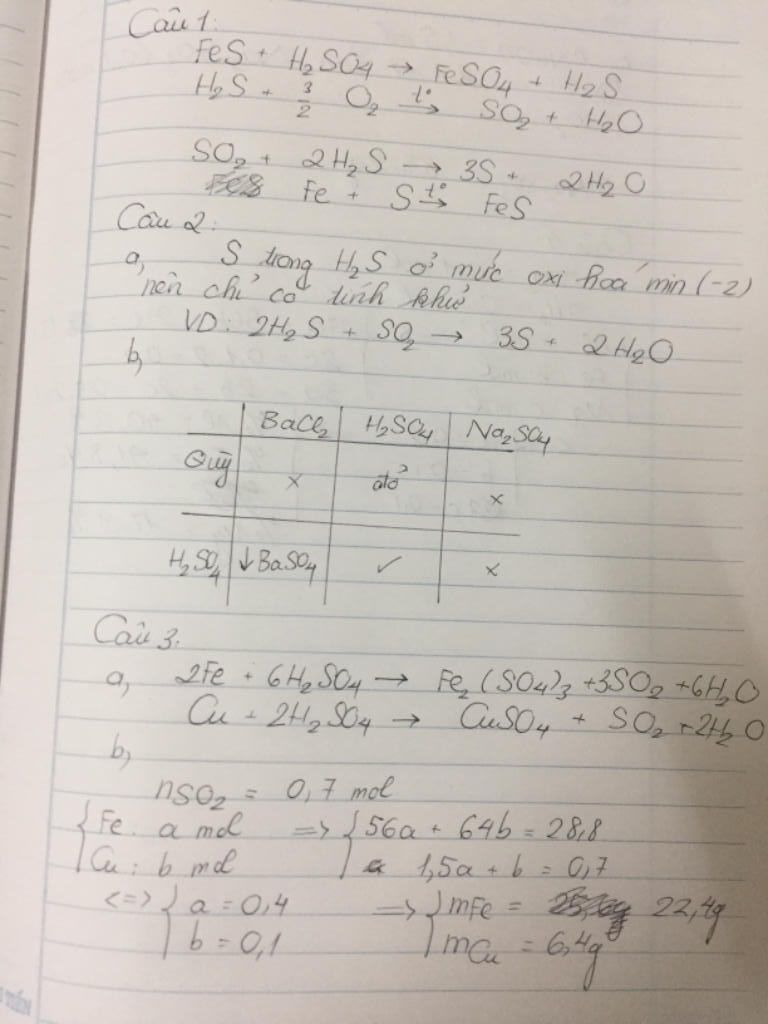 Câu 1:
FeS + H₂SO₄ → FeSO₄ + H₂S
H₂S + 3/2 O₂ t°→ SO₂ + H₂O
SO₂ + 2H₂S → 3S + 2H₂O
Fe + S t°→ FeS
Câu 2:
a, S trong H₂S ở mức oxi hoá min (-2)
nên chỉ có tính khử
VD: 2H₂S + SO₂ → 3S + 2H₂O
b,
BaCl₂ H₂SO₄ Na₂SO₄
Quỳ x đỏ x
H₂SO₄ ↓BaSO₄ ✓ x
Câu 3:
a, 2Fe + 6H₂SO₄ → Fe₂(SO₄)₃ +3SO₂ +6H₂O
Cu + 2H₂SO₄ → CuSO₄ + SO₂ +2H₂O
b,
nSO₂ = 0,7 mol
{ Fe: a mol => { 56a + 64b = 28,8
Cu: b mol 1,5a + b = 0,7
<=> { a = 0,4 => { mFe = 22,4g
b = 0,1 mCu = 6,4g